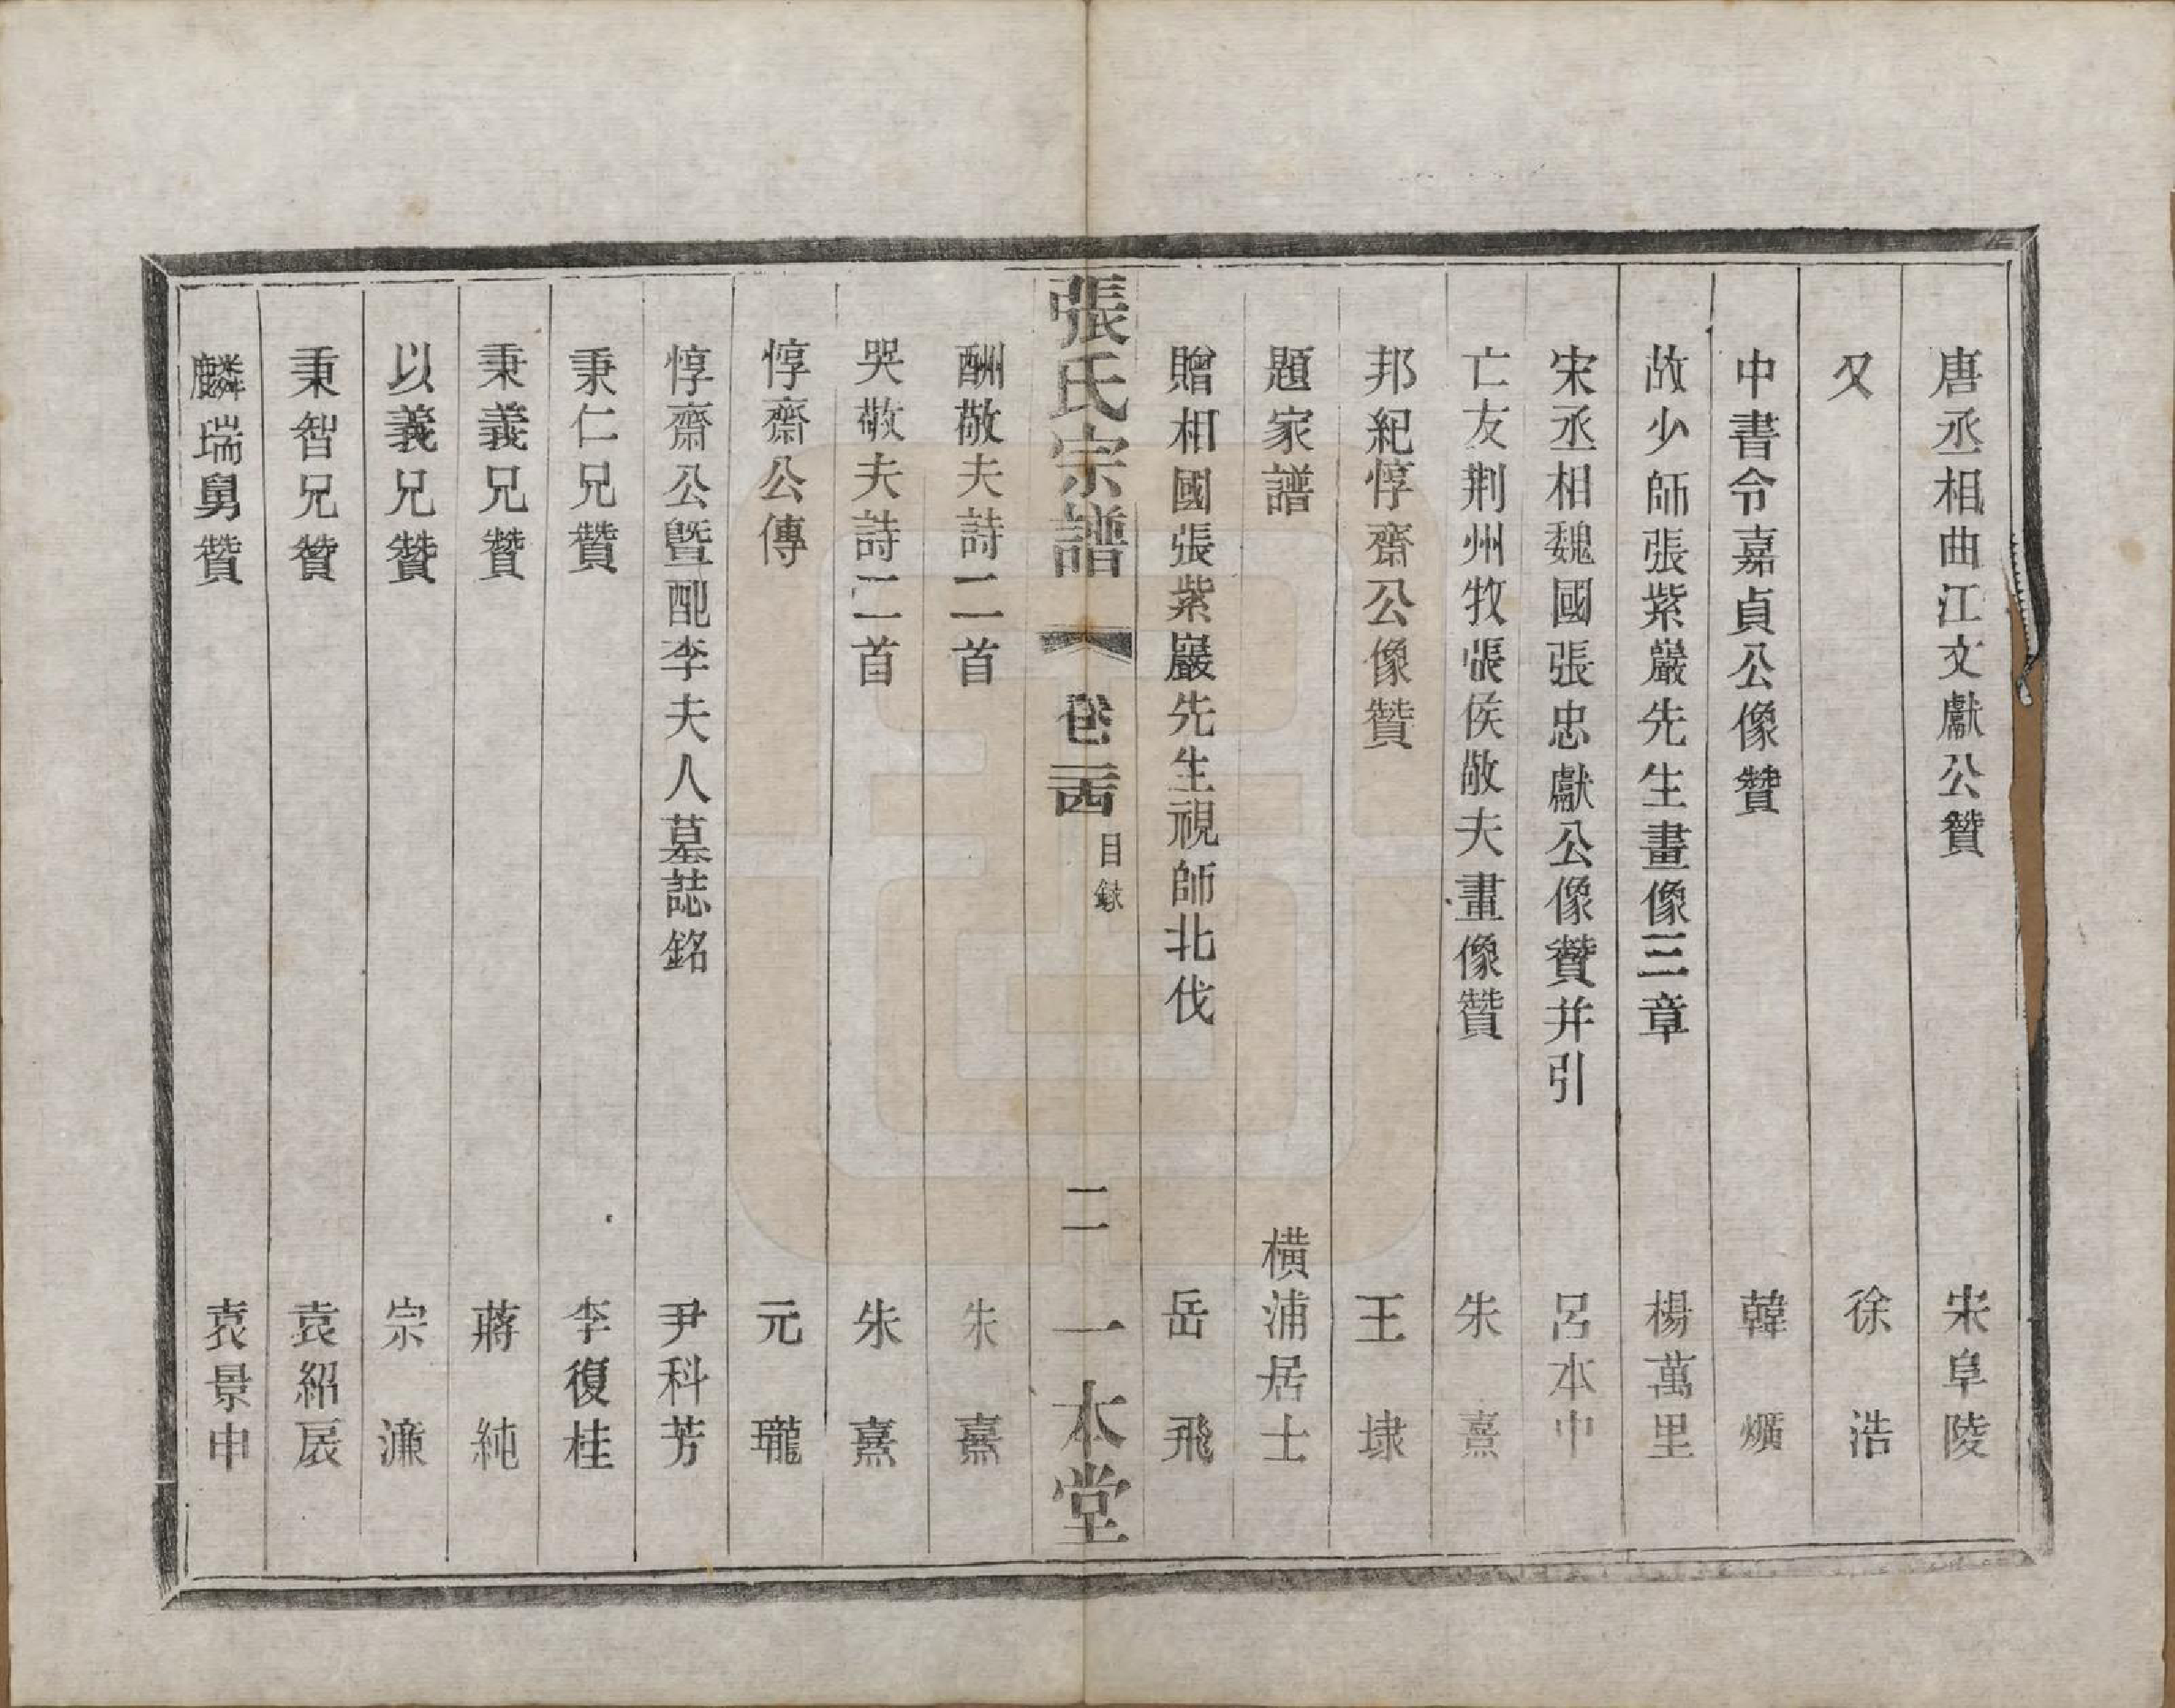 唐丞相曲江文獻公贊 宋阜陵
又 徐浩
中書令嘉貞公像贊 韓爌
故少師張紫巖先生畫像三章 楊萬里
宋丞相魏國張忠獻公像贊并引 呂本中
亡友荆州牧張侯敬夫畫像贊 朱熹
邦紀惇齋公像贊 王埭
題家譜 橫浦居士
贈相國張紫巖先生視師北伐 岳飛
張氏宗譜 卷二十四 目錄 二 一本堂
酬敬夫詩二首 朱熹
哭敬夫詩二首 朱熹
惇齋公傳 元瓏
惇齋公暨配李夫人墓誌銘 尹科芳
秉仁兄贊 李復桂
秉義兄贊 蔣純
以義兄贊 宗濂
秉智兄贊 袁紹辰
麟瑞舅贊 袁景申